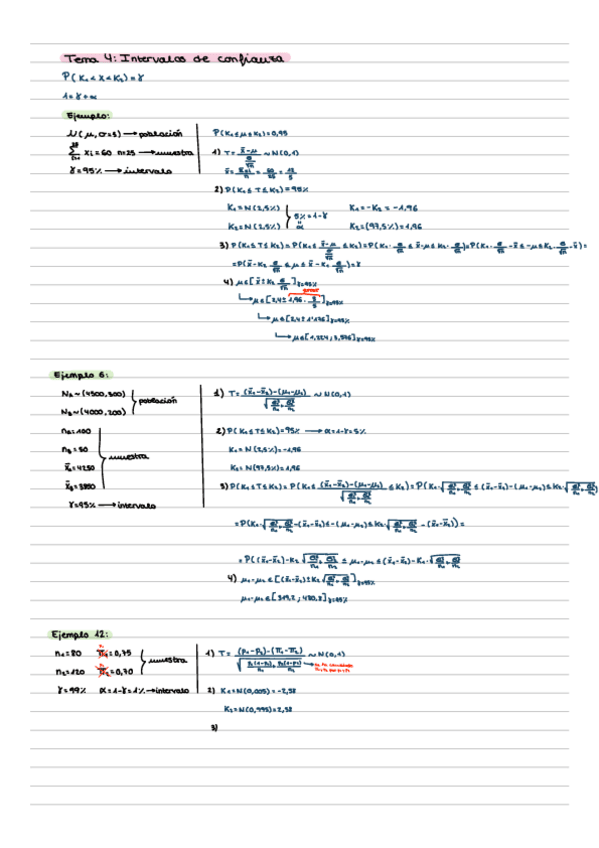 Tema 4: Intervalos de confianza
P(K₁ < X < K₂) = γ
1 = γ + α
Ejemplo:
N(μ, σ=3) → población
∑ xi = 60 n=25 → muestra
γ = 95% → intervalo
P(K₁ ≤ μ ≤ K₂) = 0,95
1) T = (x̄ - μ) / (σ/√n) ~ N(0,1)
x̄ = ∑xi/n = 60/25 = 12/5
2) P(K₁ ≤ T ≤ K₂) = 95%
K₁ = N(2,5%) K₁ = -K₂ = -1,96
5% = 1-γ
α
K₂ = N(2,5%) K₂ = (97,5%) = 1,96
3) P(K₁ ≤ T ≤ K₂) = P(K₁ ≤ (x̄ - μ)/(σ/√n) ≤ K₂) = P(K₁ · σ/√n ≤ x̄ - μ ≤ K₂ · σ/√n) = P(K₁ · σ/√n - x̄ ≤ -μ ≤ K₂ · σ/√n - x̄) =
= P(x̄ - K₂ σ/√n ≤ μ ≤ x̄ - K₁ σ/√n) = γ
4) μ ∈ [x̄ ± K₂ σ/√n] γ=95%
error
↳ μ ∈ [2,4 ± 1,96 · 3/5] γ=95%
↳ μ ∈ [2,4 ± 1'176] γ=95%
↳ μ ∈ [1,224 ; 3,576] γ=95%
Ejemplo 6:
NA ~ (4500, 300)
población
NB ~ (4000, 200)
nA = 100
nB = 50
muestra
x̄A = 4250
γ = 95% → intervalo
1) T = ((x̄₁ - x̄₂) - (μ₁ - μ₂)) / √(σ₁²/n₁ + σ₂²/n₂) ~ N(0,1)
2) P(K₁ ≤ T ≤ K₂) = 95% → α = 1-γ = 5%
K₁ = N(2,5%) = -1,96
K₂ = N(97,5%) = 1,96
3) P(K₁ ≤ T ≤ K₂) = P(K₁ ≤ ((x̄₁ - x̄₂) - (μ₁ - μ₂)) / √(σ₁²/n₁ + σ₂²/n₂) ≤ K₂) = P(K₁ · √(σ₁²/n₁ + σ₂²/n₂) ≤ (x̄₁ - x̄₂) - (μ₁ - μ₂) ≤ K₂ · √(σ₁²/n₁ + σ₂²/n₂)
= P(K₁ · √(σ₁²/n₁ + σ₂²/n₂) - (x̄₁ - x̄₂) ≤ -(μ₁ - μ₂) ≤ K₂ · √(σ₁²/n₁ + σ₂²/n₂) - (x̄₁ - x̄₂)) =
= P((x̄₁ - x̄₂) - K₂ √(σ₁²/n₁ + σ₂²/n₂) ≤ μ₁ - μ₂ ≤ (x̄₁ - x̄₂) - K₁ · √(σ₁²/n₁ + σ₂²/n₂)
4) μ₁ - μ₂ ∈ [(x̄₁ - x̄₂) ± K₂ √(σ₁²/n₁ + σ₂²/n₂)] γ=95%
μ₁ - μ₂ ∈ [319,2 ; 480,8] γ=95%
Ejemplo 12:
n₁ = 80 π₁ = 0,75
muestra
n₂ = 120 π₂ = 0,70
γ = 99% α = 1-γ = 1% → intervalo
1) T = ((p₁ - p₂) - (π₁ - π₂)) / √(p₁(1-p₁)/n₁ + p₂(1-p₂)/n₂) ~ N(0,1)
2) K₁ = N(0,005) = -2,58
K₂ = N(0,995) = 2,58
3)